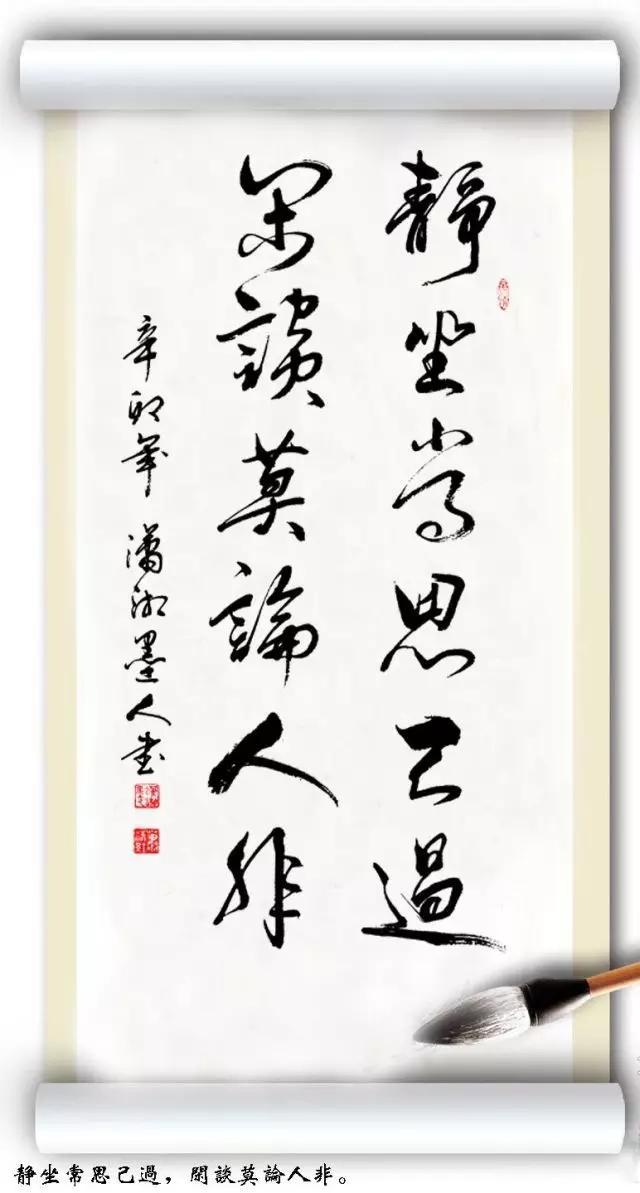 靜坐常思己過
閒談莫論人非
辛卯年 瀟湘墨人書
静坐常思己過，閒談莫論人非。